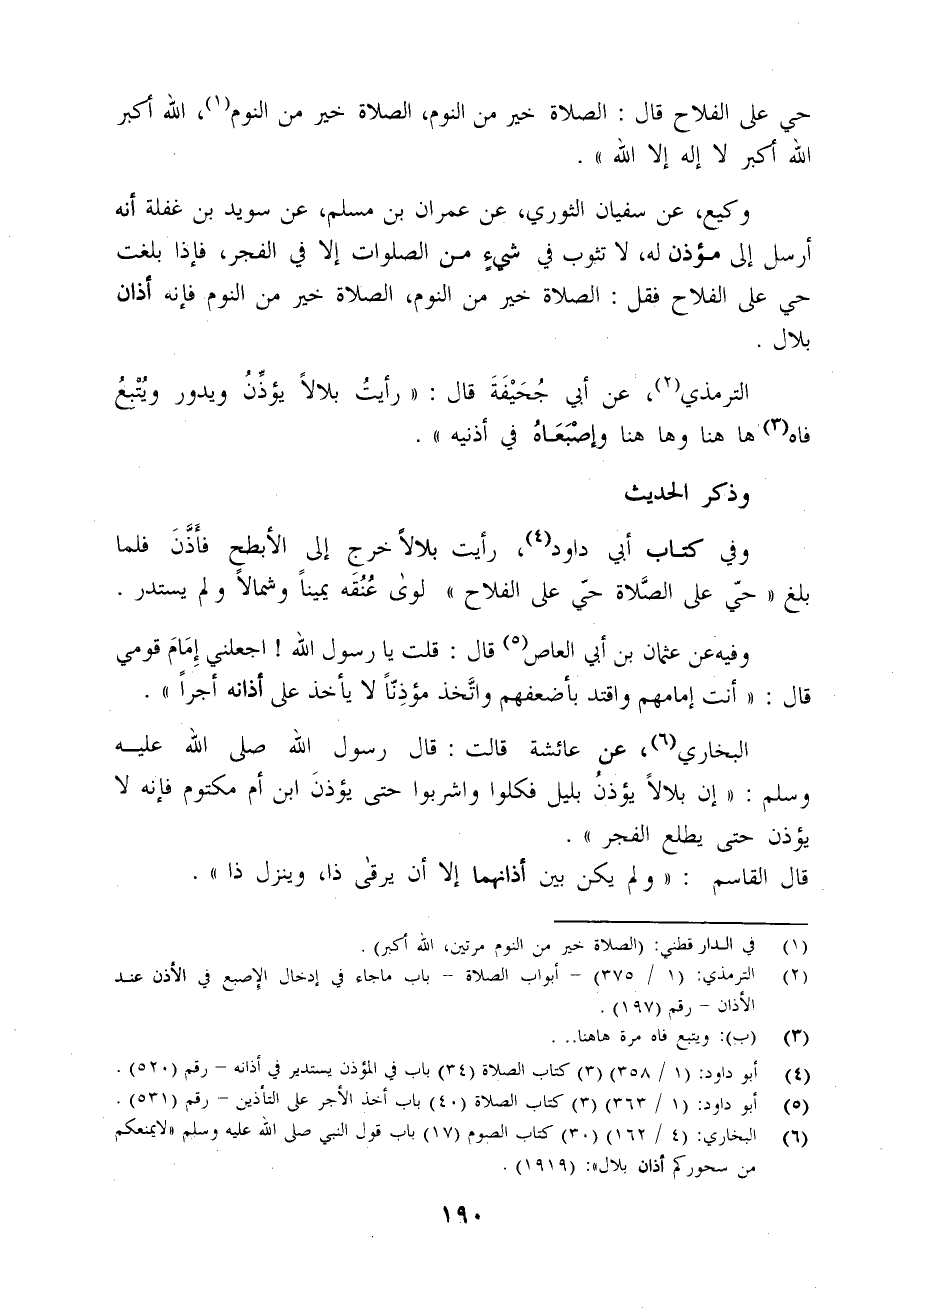 حي على الفلاح قال : الصلاة خير من النوم، الصلاة خير من النوم(١)، الله أكبر
الله أكبر لا إله إلا الله » .
وكيع، عن سفيان الثوري، عن عمران بن مسلم، عن سويد بن غفلة أنه
أرسل إلى مؤذن له، لا تثوب في شيءٍ من الصلوات إلا في الفجر، فإذا بلغت
حي على الفلاح فقل : الصلاة خير من النوم، الصلاة خير من النوم فإنه أذان
بلال .
الترمذي(٢)، عن أبي جُحَيْفَةَ قال : « رأيتُ بلالاً يؤذِّنُ ويدور ويُتْبِعُ
فاه(٣) ها هنا وها هنا وإصْبَعَاهُ في أذنيه » .
وذكر الحديث
وفي كتاب أبي داود(٤)، رأيت بلالاً خرج إلى الأبطح فأَذَّنَ فلما
بلغ « حيّ على الصَّلاة حيّ على الفلاح » لوىٰ عُنُقَه يميناً وشمالاً ولم يستدر .
وفيه عن عثمان بن أبي العاص(٥) قال : قلت يا رسول الله ! اجعلني إمَامَ قومي
قال : « أنت إمامهم واقتد بأضعفهم واتَّخذ مؤذِنّاً لا يأخذ على أذانه أجراً » .
البخاري(٦)، عن عائشة قالت : قال رسول الله صلى الله عليه
وسلم : « إن بلالاً يؤذنُ بليل فكلوا واشربوا حتى يؤذنَ ابن أم مكتوم فإنه لا
يؤذن حتى يطلع الفجر » .
قال القاسم : « ولم يكن بين أذانهما إلا أن يرقىٰ ذا، وينزل ذا » .
(١) في الدار قطني: (الصلاة خير من النوم مرتين، الله أكبر) .
(٢) الترمذي: (١ / ٣٧٥) – أبواب الصلاة – باب ماجاء في إدخال الإصبع في الأذن عند
الأذان – رقم (١٩٧) .
(٣) (ب): ويتبع فاه مرة هاهنا.. .
(٤) أبو داود: (١ / ٣٥٨) (٣) كتاب الصلاة (٣٤) باب في المؤذن يستدير في أذانه – رقم (٥٢٠) .
(٥) أبو داود: (١ / ٣٦٣) (٣) كتاب الصلاة (٤٠) باب أخذ الأجر على التأذين – رقم (٥٣١) .
(٦) البخاري: (٤ / ١٦٢) (٣٠) كتاب الصوم (١٧) باب قول النبي صلى الله عليه وسلم «لايمنعكم
من سحوركم أذان بلال»: (١٩١٩) .
١٩٠